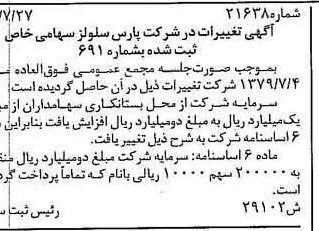 شماره ۲۱۶۳۸ /۷/۲۷
آگهی تغییرات در شرکت پارس سلولز سهامی خاص
ثبت شده بشماره ۶۹۱
بموجب صورت‌جلسه مجمع عمومی فوق‌العاده م
۱۳۷۹/۷/۴ شرکت تغییرات ذیل در آن حاصل گردیده است:
سرمایه شرکت از محل بستانکاری سهامداران از م
یک‌میلیارد ریال به مبلغ دومیلیارد ریال افزایش یافت بنابراین م
۶ اساسنامه شرکت به شرح ذیل تغییر یافت.
ماده ۶ اساسنامه: سرمایه شرکت مبلغ دومیلیارد ریال منق
به ۲۰۰۰۰۰ سهم ۱۰۰۰۰ ریالی بانام که تماماً پرداخت گرد
است.
ش۲۹۱۰۲ رئیس ثبت س